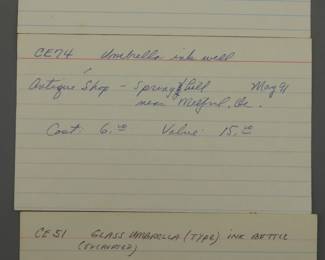 CE74 Umbrella ink well
Antique Shop - Spring Hill May 91
near Milford, De.
Cost: 6.00 Value: 15.00
CE 51 GLASS UMBRELLA (TYPE) INK BOTTLE